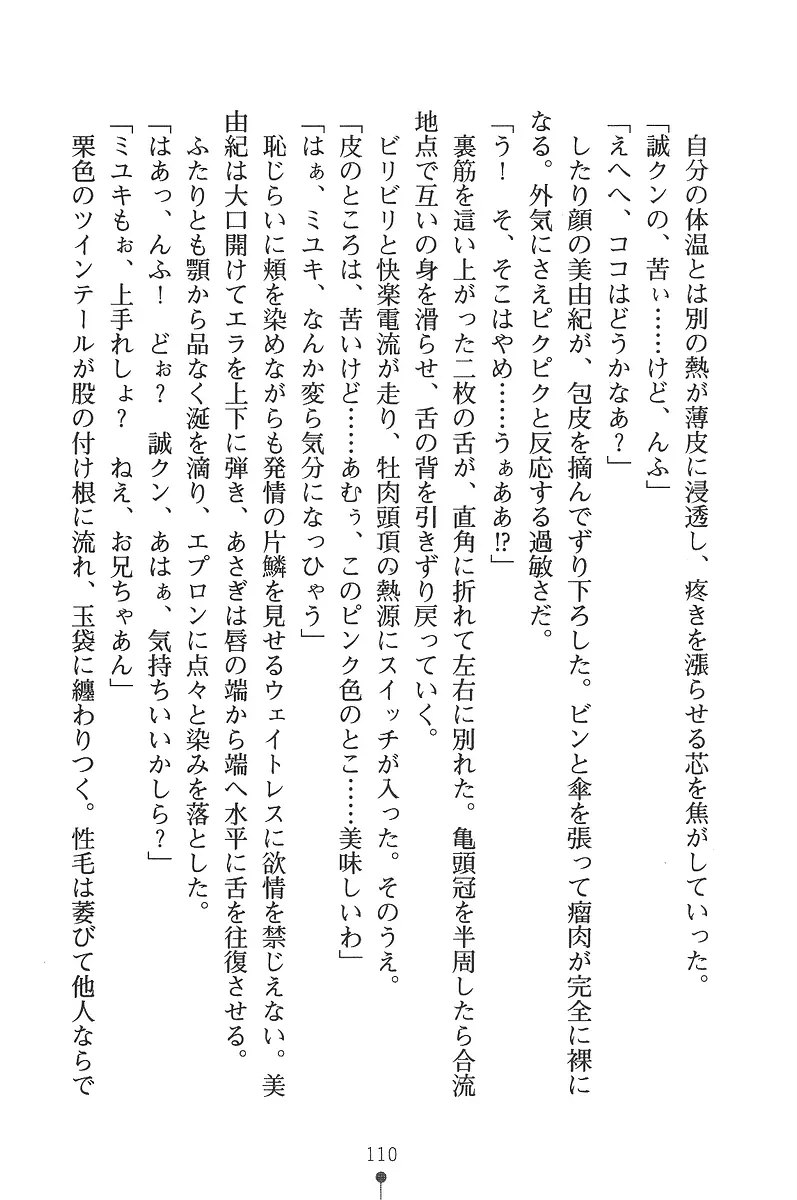 自分の体温とは別の熱が薄皮に浸透し、疼きを漲らせる芯を焦がしていった。
「誠クンの、苦ぃ……けど、んふ」
「えへへ、ココはどうかなあ？」
したり顔の美由紀が、包皮を摘んでずり下ろした。ビンと傘を張って瘤肉が完全に裸に
なる。外気にさえピクピクと反応する過敏さだ。
「う！　そ、そこはやめ……うぁああ!?」
裏筋を這い上がった二枚の舌が、直角に折れて左右に別れた。亀頭冠を半周したら合流
地点で互いの身を滑らせ、舌の背を引きずり戻っていく。
ビリビリと快楽電流が走り、牡肉頭頂の熱源にスイッチが入った。そのうえ。
「皮のところは、苦いけど……あむぅ、このピンク色のとこ……美味しいわ」
「はぁ、ミユキ、なんか変ら気分になっひゃう」
恥じらいに頬を染めながらも発情の片鱗を見せるウェイトレスに欲情を禁じえない。美
由紀は大口開けてエラを上下に弾き、あさぎは唇の端から端へ水平に舌を往復させる。
ふたりとも顎から品なく涎を滴り、エプロンに点々と染みを落とした。
「はあっ、んふ！　どぉ？　誠クン、あはぁ、気持ちいいかしら？」
「ミユキもぉ、上手れしょ？　ねえ、お兄ちゃあん」
栗色のツインテールが股の付け根に流れ、玉袋に纏わりつく。性毛は萎びて他人ならで
110